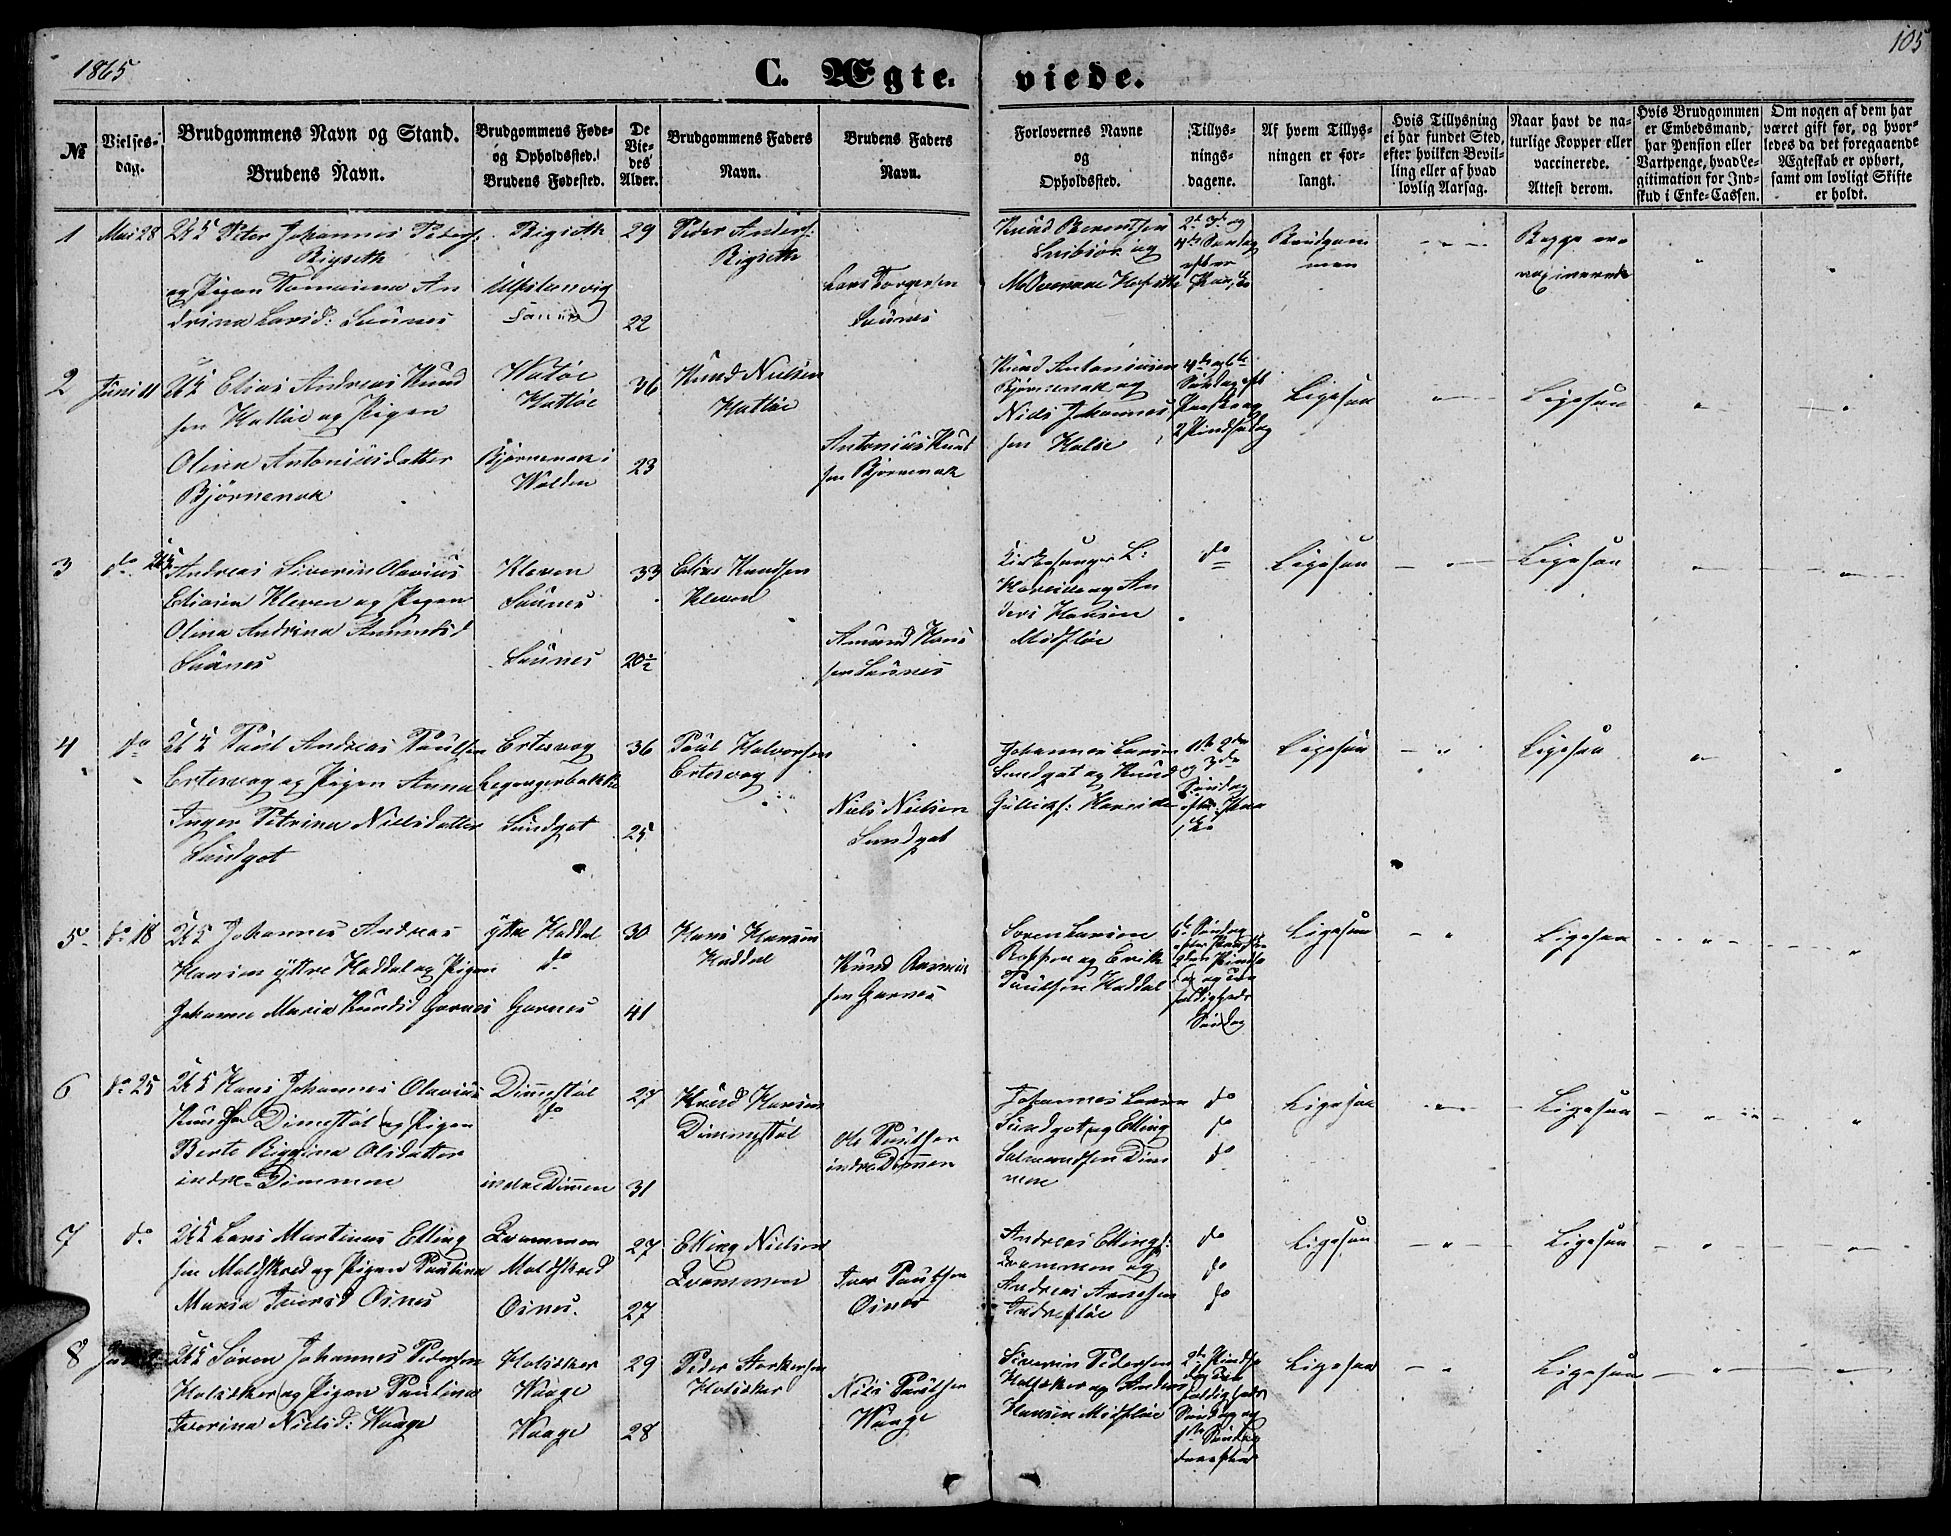 1865
C. Ægte- viede.
105
№
Vielses-
dag.
Brudgommens Navn og Stand.
Brudens Navn.
Brudgommens Føde-
og Opholdssted.
Brudens Fødested.
De
Vie-
des
Alder.
Brudgommens Faders
Navn.
Brudens Faders
Navn.
Forlovernes Navne
og
Opholdssted.
Tillys-
nings-
dagene.
Af hvem Tillys-
ningen er for-
langt.
Hvis Tillysning
ei har fundet Sted,
efter hvilken Bevil-
ling eller af hvad
lovlig Aarsag.
Naar havt de na-
turlige Kopper eller
vaccinerede.
Attest derom.
Hvis Brudgommen
er Embedsmand,
har Pension eller
Vartpenge, hvad Le-
gitimation for Ind-
skud i Enke-Cassen.
Om nogen af dem har
været gift før, og hvor-
ledes da det foregaaende
Ægteskab er ophørt,
samt om lovligt Skifte
er holdt.
1
Mai 28
Peter Johannes Peders:
Rigseth
og Pigen An
drina Larsd: Saunes
Rigseth
Ulfstenvig
Saunes
29
22
Peder Anders:
Rigseth
Lars Torgersen
Saunes
Knud Berentsen
og
2de 3de og
4de Søndag
efter
Paaske
Brudgom
men
Begge ere
vaxinerede
2
Juni 11
Elias Andreas Knud
sen Hatløe og Pigen
Olina Antoniusdatter
Bjørnenak
Hatløe
Hatløe
Bjørnenak i
Volden
36
23
Knud Nielsen
Hatløe
Antonius Knud
sen Bjørnenak
Knud Antoniusen
Bjørnenak og
Niels Johannes
sen Hatløe
4de og 6te
Søndag eft
Paaske og
2 Pindsedag
Ligesaa
Ligesaa
3
do
Andreas Severin Olavius
Eliasen Kleven og Pigen
Olina Andrina Amundsd
Saunes
Kleven
Saunes
Saunes
33
20½
Elias Knudsen
Kleven
Amund Hans
sen Saunes
Kirkesanger L:
Hareide og An
ders Hansen
Midfløe
do
Ligesaa
Ligesaa
4
do
Paul Andreas Paulsen
Ertesvag og Pigen Anna
Inger Petrina Nielsdatter
Sundgot
Ertesvag
Sundgot
36
25
Paul Halvorsen
Ertesvag
Niels Nielsen
Sundgot
Johannes Larsen
Sundgot og Knud
Hareide
1ste 2den
og 3die
Søndag
efter Paa
ske
Ligesaa
Ligesaa
5
do 18
Johannes Andreas
Hansen yttre Haddal og Pigen
Johanne Maria Knudsd Garnes
yttre Haddal
do
Garnes
30
41
Hans Hansen
Haddal
Knud Rasmus
sen Garnes
Soren Larsen
og Erik
Paulsen Haddal
6te Søndag
efter Paaske
2den Pindse
dag og Tre
foldigheds
Søndag
Ligesaa
Ligesaa
6
do 25
Hans Johannes Olavius
Knudsen Dimestøl og Pigen
Berte Regina Olsdatter
indre Dimmen
Dimestøl
do
indre Dimen
27
31
Knud Hansen
Dimmestøl
Ole Paulsen
indre Dimmen
Johannes Larsen
Sundgot og Elling
Salamonsen Dim
men
do
do
do
Ligesaa
Ligesaa
7
do
Lars Martinus Elling
sen Moldskred og Pigen Paulina
Maria Iversd Osnes
Qvammen
Moldskred
Osnes.
27
27
Elling Nielsen
Qvammen
Iver Paulsen
Osnes
Andreas Ellings:
Qvammen og
Andreas Arnesen
Indrefløe
do
do
do
Ligesaa
Ligesaa
8
Søren Johannes Pedersen
Holsæker og Pigen Paulina
Iverina Nielsd: Waage
Holsæker
Waage
Waage
29
28
Peder Storkersen
Holsæker
Niels Paulsen
Waage
Siverin Pedersen
Holsæker og Anders
Hansen Midfløe
2de Pindse
dag Tre
foldigheds
Søndag og
1ste Søndag
derefter
Ligesaa
Ligesaa